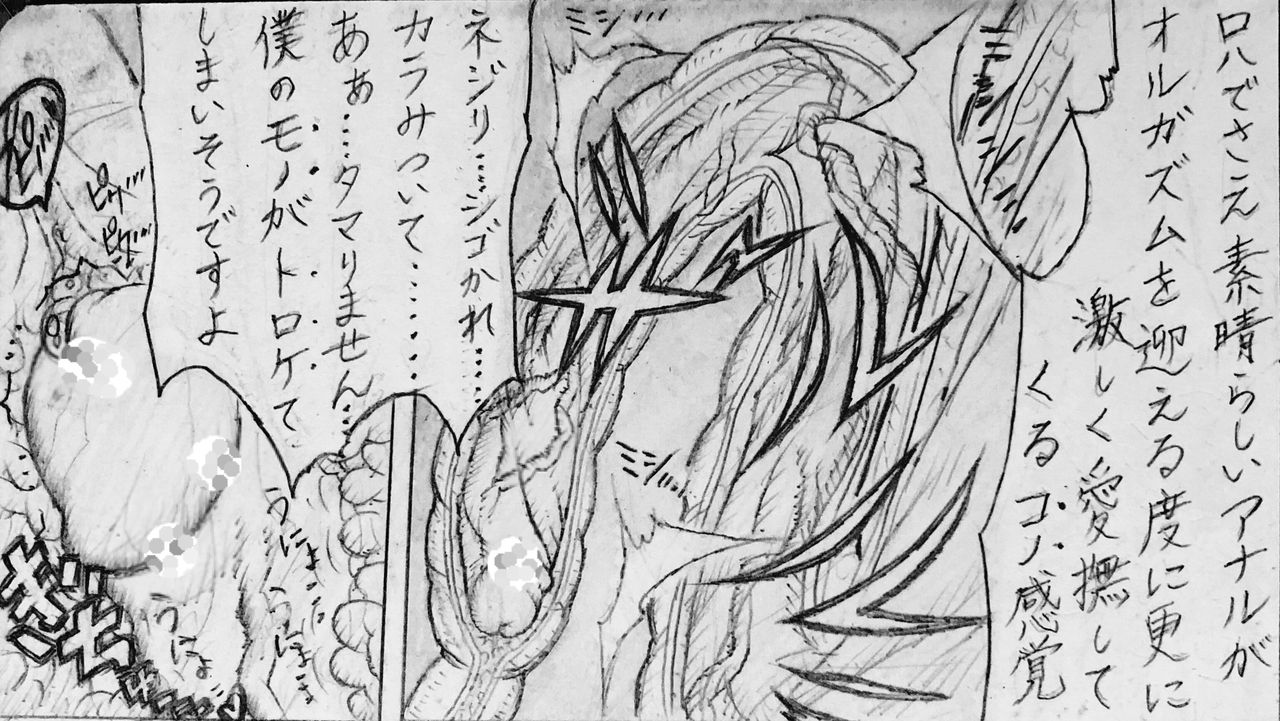 ロハでさえ素晴らしいアナルが
オルガズムを迎える度に更に
激しく愛撫して
くるコノ感覚
ミシ
ミシ
ネジリ……シゴかれ……
カラみついて………
あぁ……タマりません……
僕のモノがトロケて
しまいそうですよ
ピク
ピク